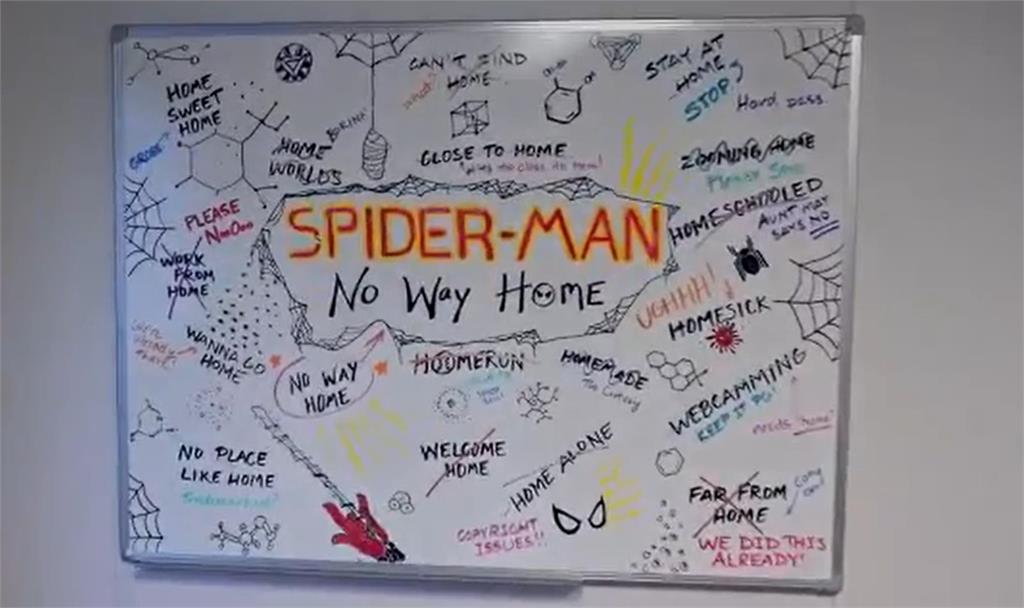 HOME
SWEET
HOME
GROSS
CAN'T FIND
HOME
what?
STAY AT
HOME
STOP
Hard pass
HOME
WORLDS
BORING
CLOSE TO HOME
ZOOMING HOME
PLEASE
NoOo
HOMESCHOOLED
AUNT MAY
SAYS NO
SPIDER-MAN
No Way Home
WORK
FROM
HOME
UGHHH!
HOMESICK
WANNA GO
HOME
NO WAY
HOME
HOMERUN
HOMEMADE
Too Corny
WEBCAMMING
KEEP IT PG
needs "home"
NO PLACE
LIKE HOME
WELCOME
HOME
HOME ALONE
COPYRIGHT
ISSUES!!
FAR FROM
HOME
WE DID THIS
ALREADY!